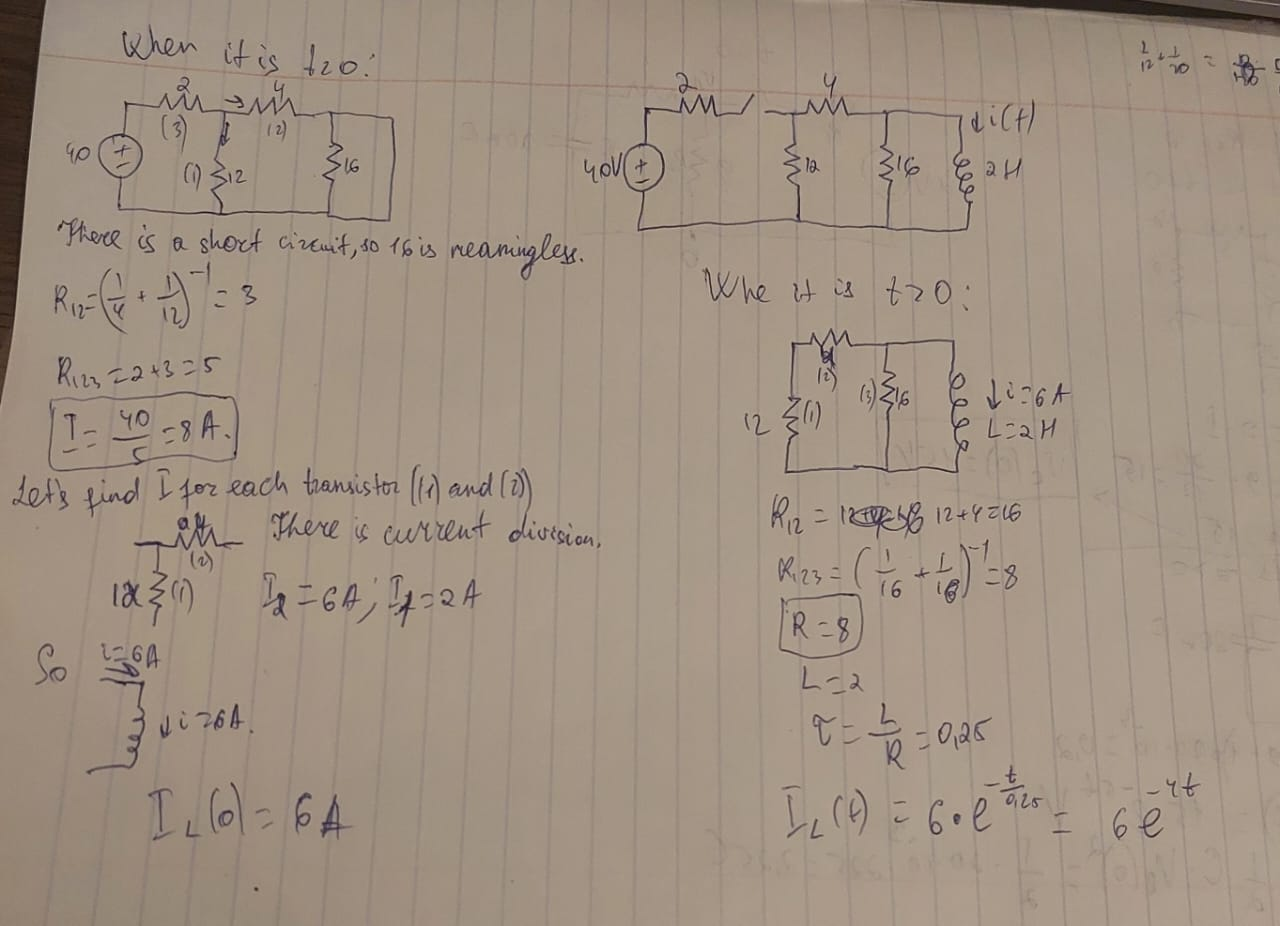 When it is t≥0:
2
4
(3)
(2)
40
(1)
12
16
There is a short circuit, so 16 is meaningless.
R12=(1/4 + 1/12)^-1 = 3
R123 = 2+3 = 5
I = 40/5 = 8 A.
Let's find I for each transistor ((1) and (2))
There is current division.
(2)
12
(1)
I2 = 6A; I1 = 2A
So
i=6A
↓i=6A.
IL(0) = 6A
1/12 + 1/20 =
2
4
↓i(t)
40V
12
16
2H
Whe it is t>0:
(2)
12
(1)
(3)
16
↓i=6A
L=2H
R12 = 12+4=16
R123 = (1/16 + 1/16)^-1 = 8
R = 8
L=2
τ = L/R = 0,25
IL(t) = 6·e^-t/0,25 = 6e^-4t